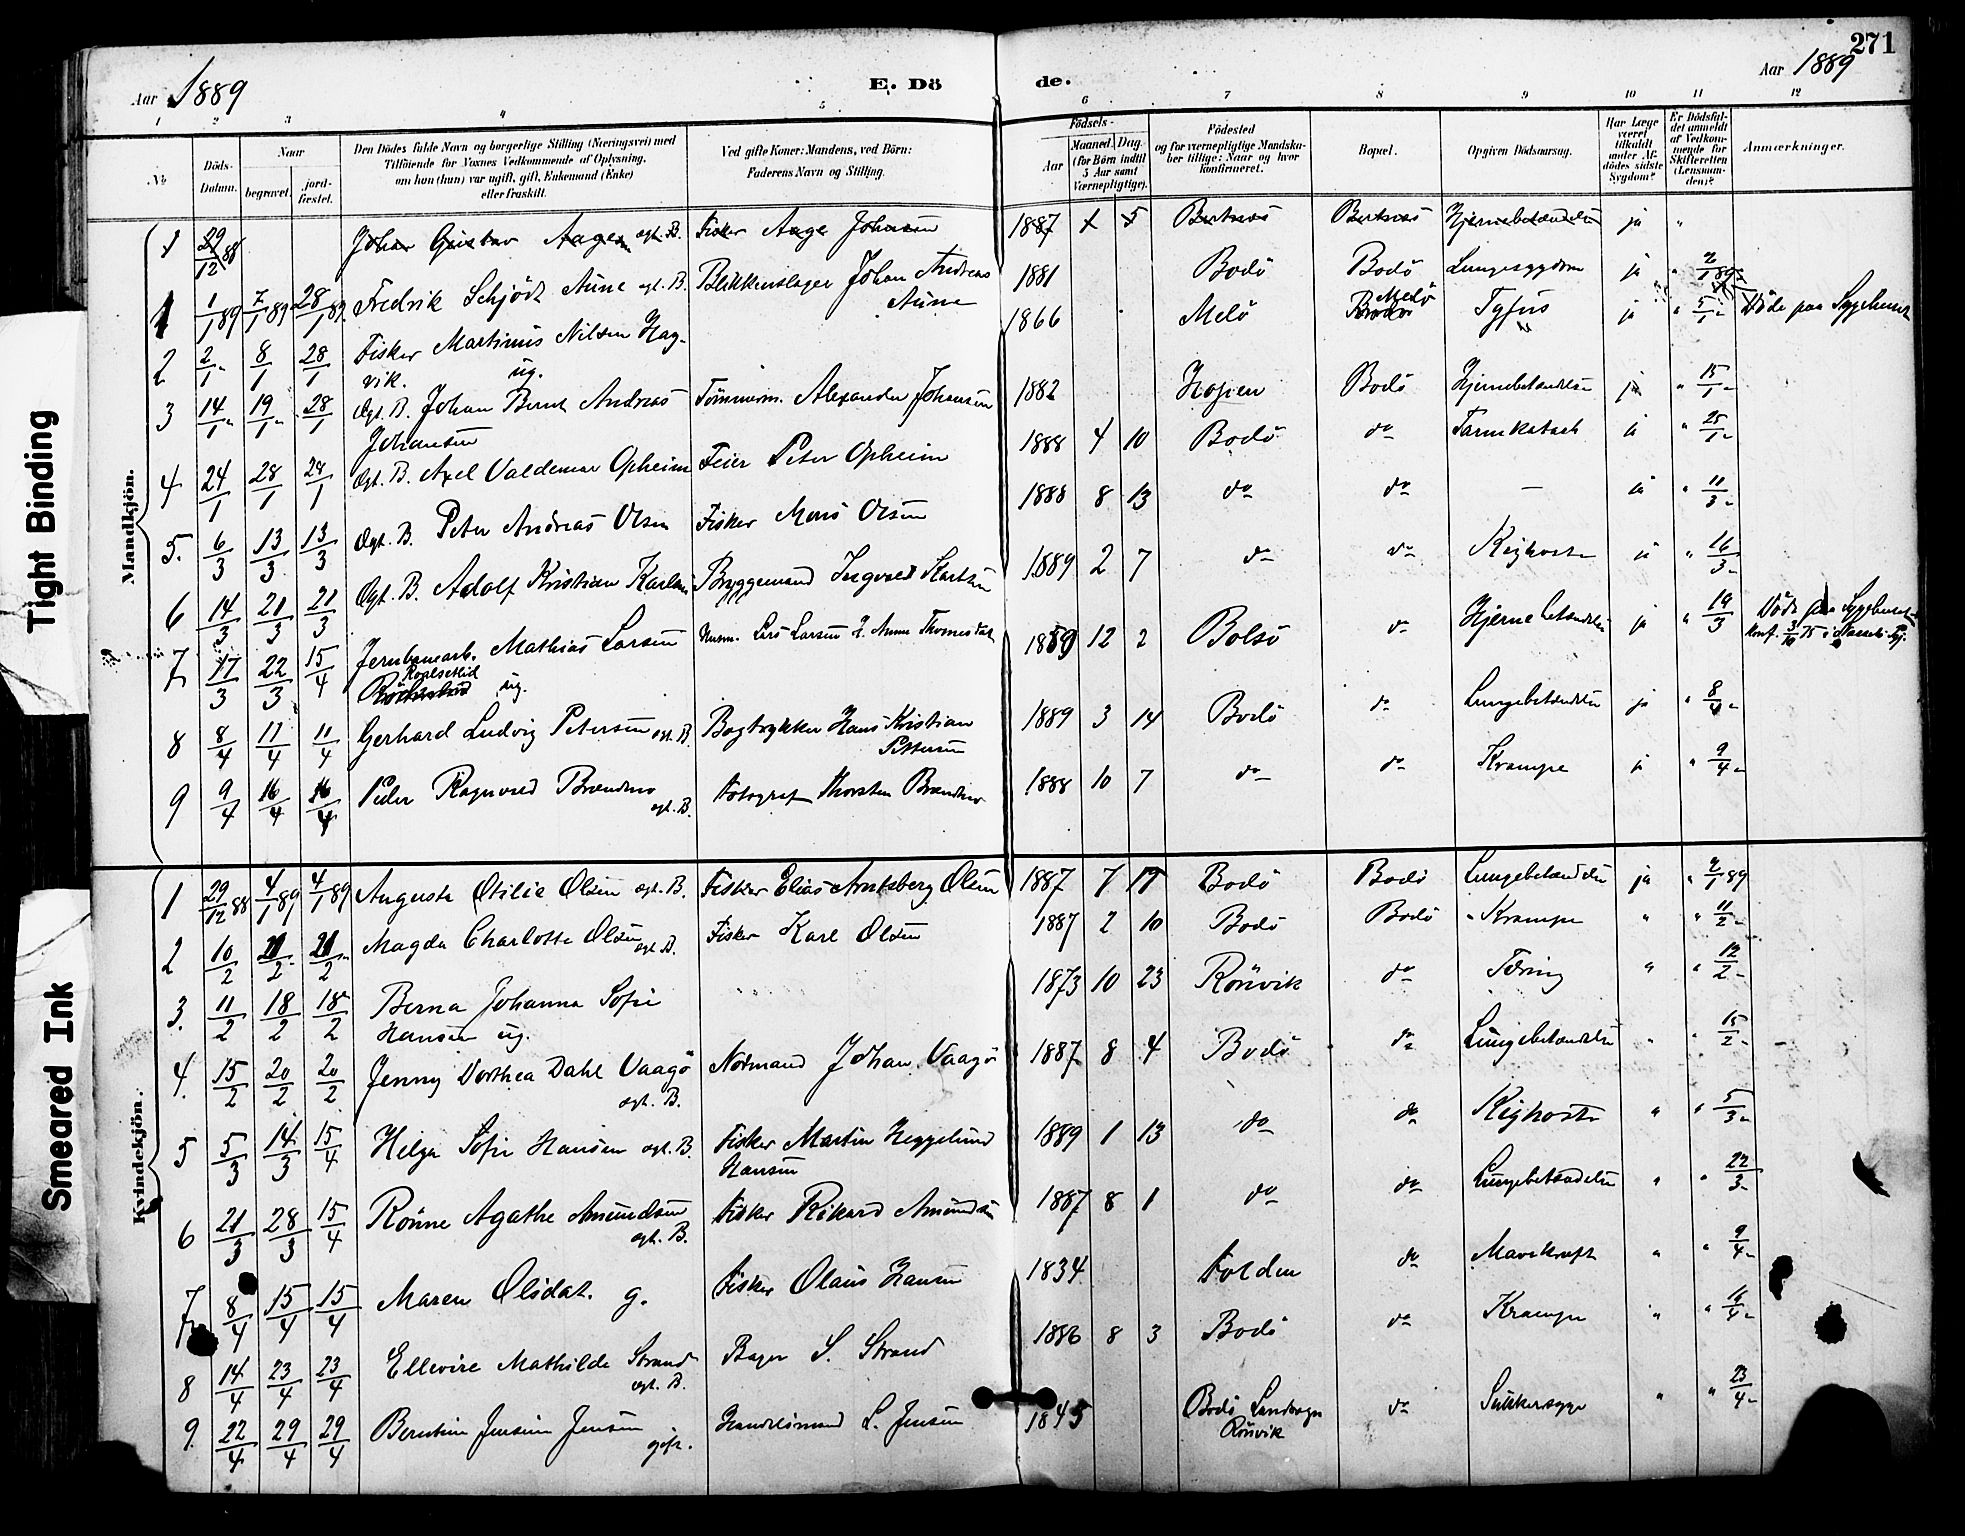 271
Aar 1889
E. Dö
de.
Aar 1889
1 2 3 4 5 6 7 8 9 10 11 12
No
Döds-Datum.
Naar
begravet.
jord-fæstet.
Den Dödes fulde Navn og borgerlige Stilling (Næringsvei) med
Tilföiende for Voxnes Vedkommende af Oplysning,
om han (hun) var ugift, gift, Enkemand (Enke)
eller fraskilt.
Ved gifte Koner: Mandens, ved Börn:
Faderens Navn og Stilling.
Födsels-
Aar
Maaned. Dag.
(for Börn indtil
5 Aar samt
Værnepligtige).
Födested
og for værnepligtige Mandska-
ber tillige: Naar og hvor
konfirmeret.
Bopæl.
Opgiven Dödsaarsag.
Har Læge
været
tilkaldt
under Af-
dödes sidste
Sygdom?
Er Dödsfal-
det anmeldt
af Vedkom-
mende for
Skifteretten
(Lensman-
den)?
Anmærkninger.
Mandkjön.
1 29/12 88 Johan Gustav Aagesen ægt. B. Fisker Aage Johansen 1887 5 Bertnæs Bertnæs Hjernebetændelse ja "
1 1/1 89 7/1 89 28/1 89 Fredrik Schjödt Aune ægt. B. Blikkenslager Johan Andreas Aune 1881 Bodö Bodö Lungesygdom ja " 2/1 89
2 2/1 8/1 28/1 Fisker Martinus Nilsen Hag-
vik. ug. 1866 Melö Melö Tyfus ja " 5/1 Döde paa Sygehuset
3 14/1 19/1 28/1 Ægt. B. Johan Bernt Andreas
Johansen Tömmerm. Alexander Johansen 1882 Bodö Hjernebetændelse ja " 15/1
4 24/1 28/1 28/1 Ægt. B. Axel Valdemar Opheim Feier Peter Opheim 1888 4 10 Bodö do Tarmkatarh ja " 25/1
5. 6/3 13/3 13/3 Ægt. B. Peter Andreas Olsen Fisker Mons Olsen 1888 8 13 do do — ja " 11/3
6 14/3 21/3 21/3 Ægt. B. Adolf Kristian Karlsen Bryggemand Ingvald Karlsen 1889 2 7 do do Kighoste ja " 16/3
7 17/3 22/3 15/4 Jernbanearb. Mathias Larsen
ug. Husm. Lars Larsen 1859 12 2 Bolsö do Hjernebetændelse ja " 19/3 Döde paa Sygehuset
8 8/4 11/4 11/4 Gerhard Ludvig Petersen ægt. B. Bogtrykker Hans Kristian
Pettersen 1889 3 14 Bodö do Lungebetændelse ja " 8/4
9 9/4 16/4 16/4 Peder Ragnvald Brændmo ægt. B. Fotograf Thorsten Brændmo 1888 10 7 do do Krampe ja " 9/4
Kvindekjön.
1 29/12 88 4/1 89 4/1 89 Augusta Otilie Olsen ægt. B. Fisker Elias Arntsberg Olsen 1887 7 Bodö Bodö Lungebetændelse ja " 2/1 89
2 10/2 21/2 21/2 Magda Charlotte Olsen ægt. B. Fisker Karl Olsen 1887 2 10 Bodö Bodö Krampe " " 11/2
3. 11/2 18/2 18/2 Berna Johanna Sofie
Hansen ug. 1873 10 23 Rönvik do Tæring " " 12/2
4. 15/2 20/2 20/2 Jenny Dorthea Dahl Vaagö
ægt. B. Notmand Johan Vaagö 1887 8 4 Bodö do Lungebetændelse " " 15/2
5 5/3 14/3 15/4 Helga Sofie Hansen ægt. B. Fisker Martin Heggelund
Hansen 1889 1 13 do do Kighoste " " 5/3
6 21/3 28/3 15/4 Rönne Agathe Amundsen
ægt. B. Fisker Rikard Amundsen 1887 8 1 do do Lungebetændelse " " 22/3
7 8/4 15/4 15/4 Maren Olsdat. g. Fisker Olaus Hansen 1834 Folden do Mavekræft " " 9/4
8 14/4 23/4 23/4 Ellevine Mathilde Strand
ægt. B. Bager S. Strand 1886 8 3 Bodö do Krampe " "
9. 22/4 29/4 29/4 Berntine Jensine Jensen
gift. Handelsmand L. Jensen 1845 Bodö Landsogn
Rönvik do Sukkersyge " " 23/4
Tight Binding
Smeared Ink